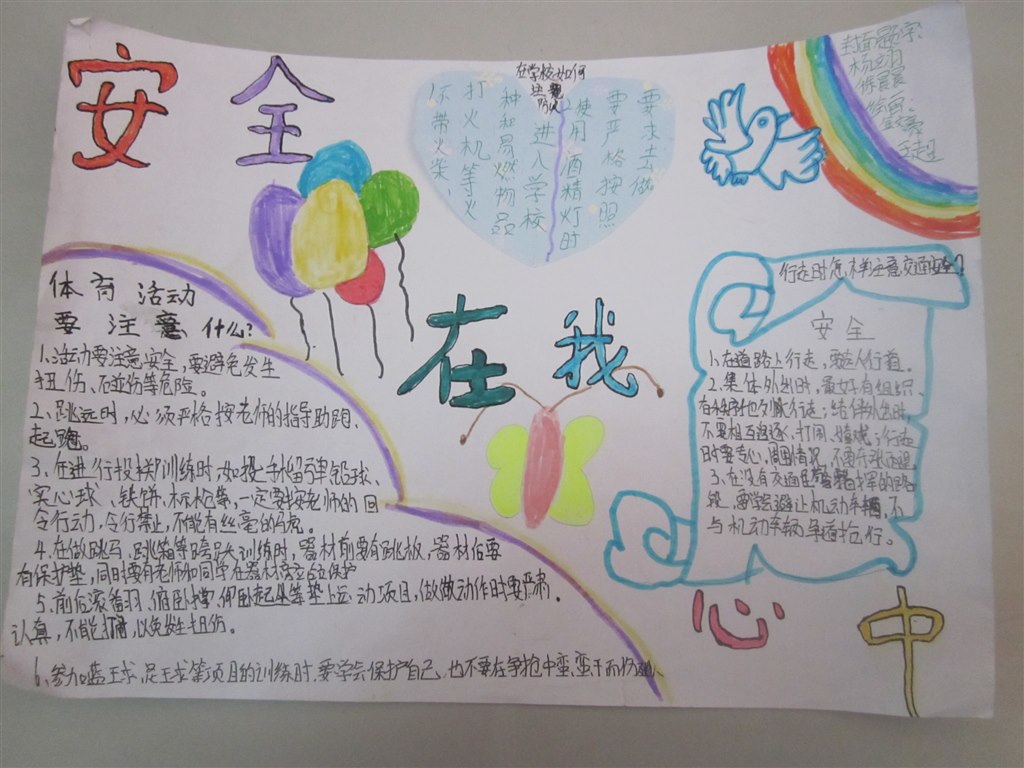 安全
在我
心中
在学校如何
注意
防火
要求去做
要严格按照
使用酒精灯时
进入学校
种和易燃物品
打火机等火
不带火柴、
体育 活动
要 注意 什么?
1、活动要注意安全,要避免发生
扭伤、碰伤等危险。
2、跳远时,必须严格按老师的指导助跑、
起跑。
3、在进行投掷训练时,如投手榴弹、铅球、
实心球、铁饼、标枪等,一定要按老师的口
令行动,令行禁止,不能有丝毫的马虎。
4、在做跳马、跳箱等跨跃训练时,器材前要有跳板,器材后要
有保护垫,同时要有老师和同学在器材旁站立保护
5、前后滚翻、俯卧撑、仰卧起坐等垫上运动项目,做做动作时要严肃.
认真,不能打闹,以免发生扭伤。
6、参加篮王求、足王求等项目的训练时,要学会保护自己,也不要在争抢中蛮,蛮干而伤
行走时怎样注意交通安全?
安全
1、在道路上行走,要走人行道。
2、集体外出时,最好有组织、
有秩序地列队行走;结伴外出时,
不要相互追逐、打闹、嬉戏;行走
时要专心,周围情况,不要
3、在没有交通民警指挥的路
段,要学会避让机动车辆,不
与机动车辆争道抢行。